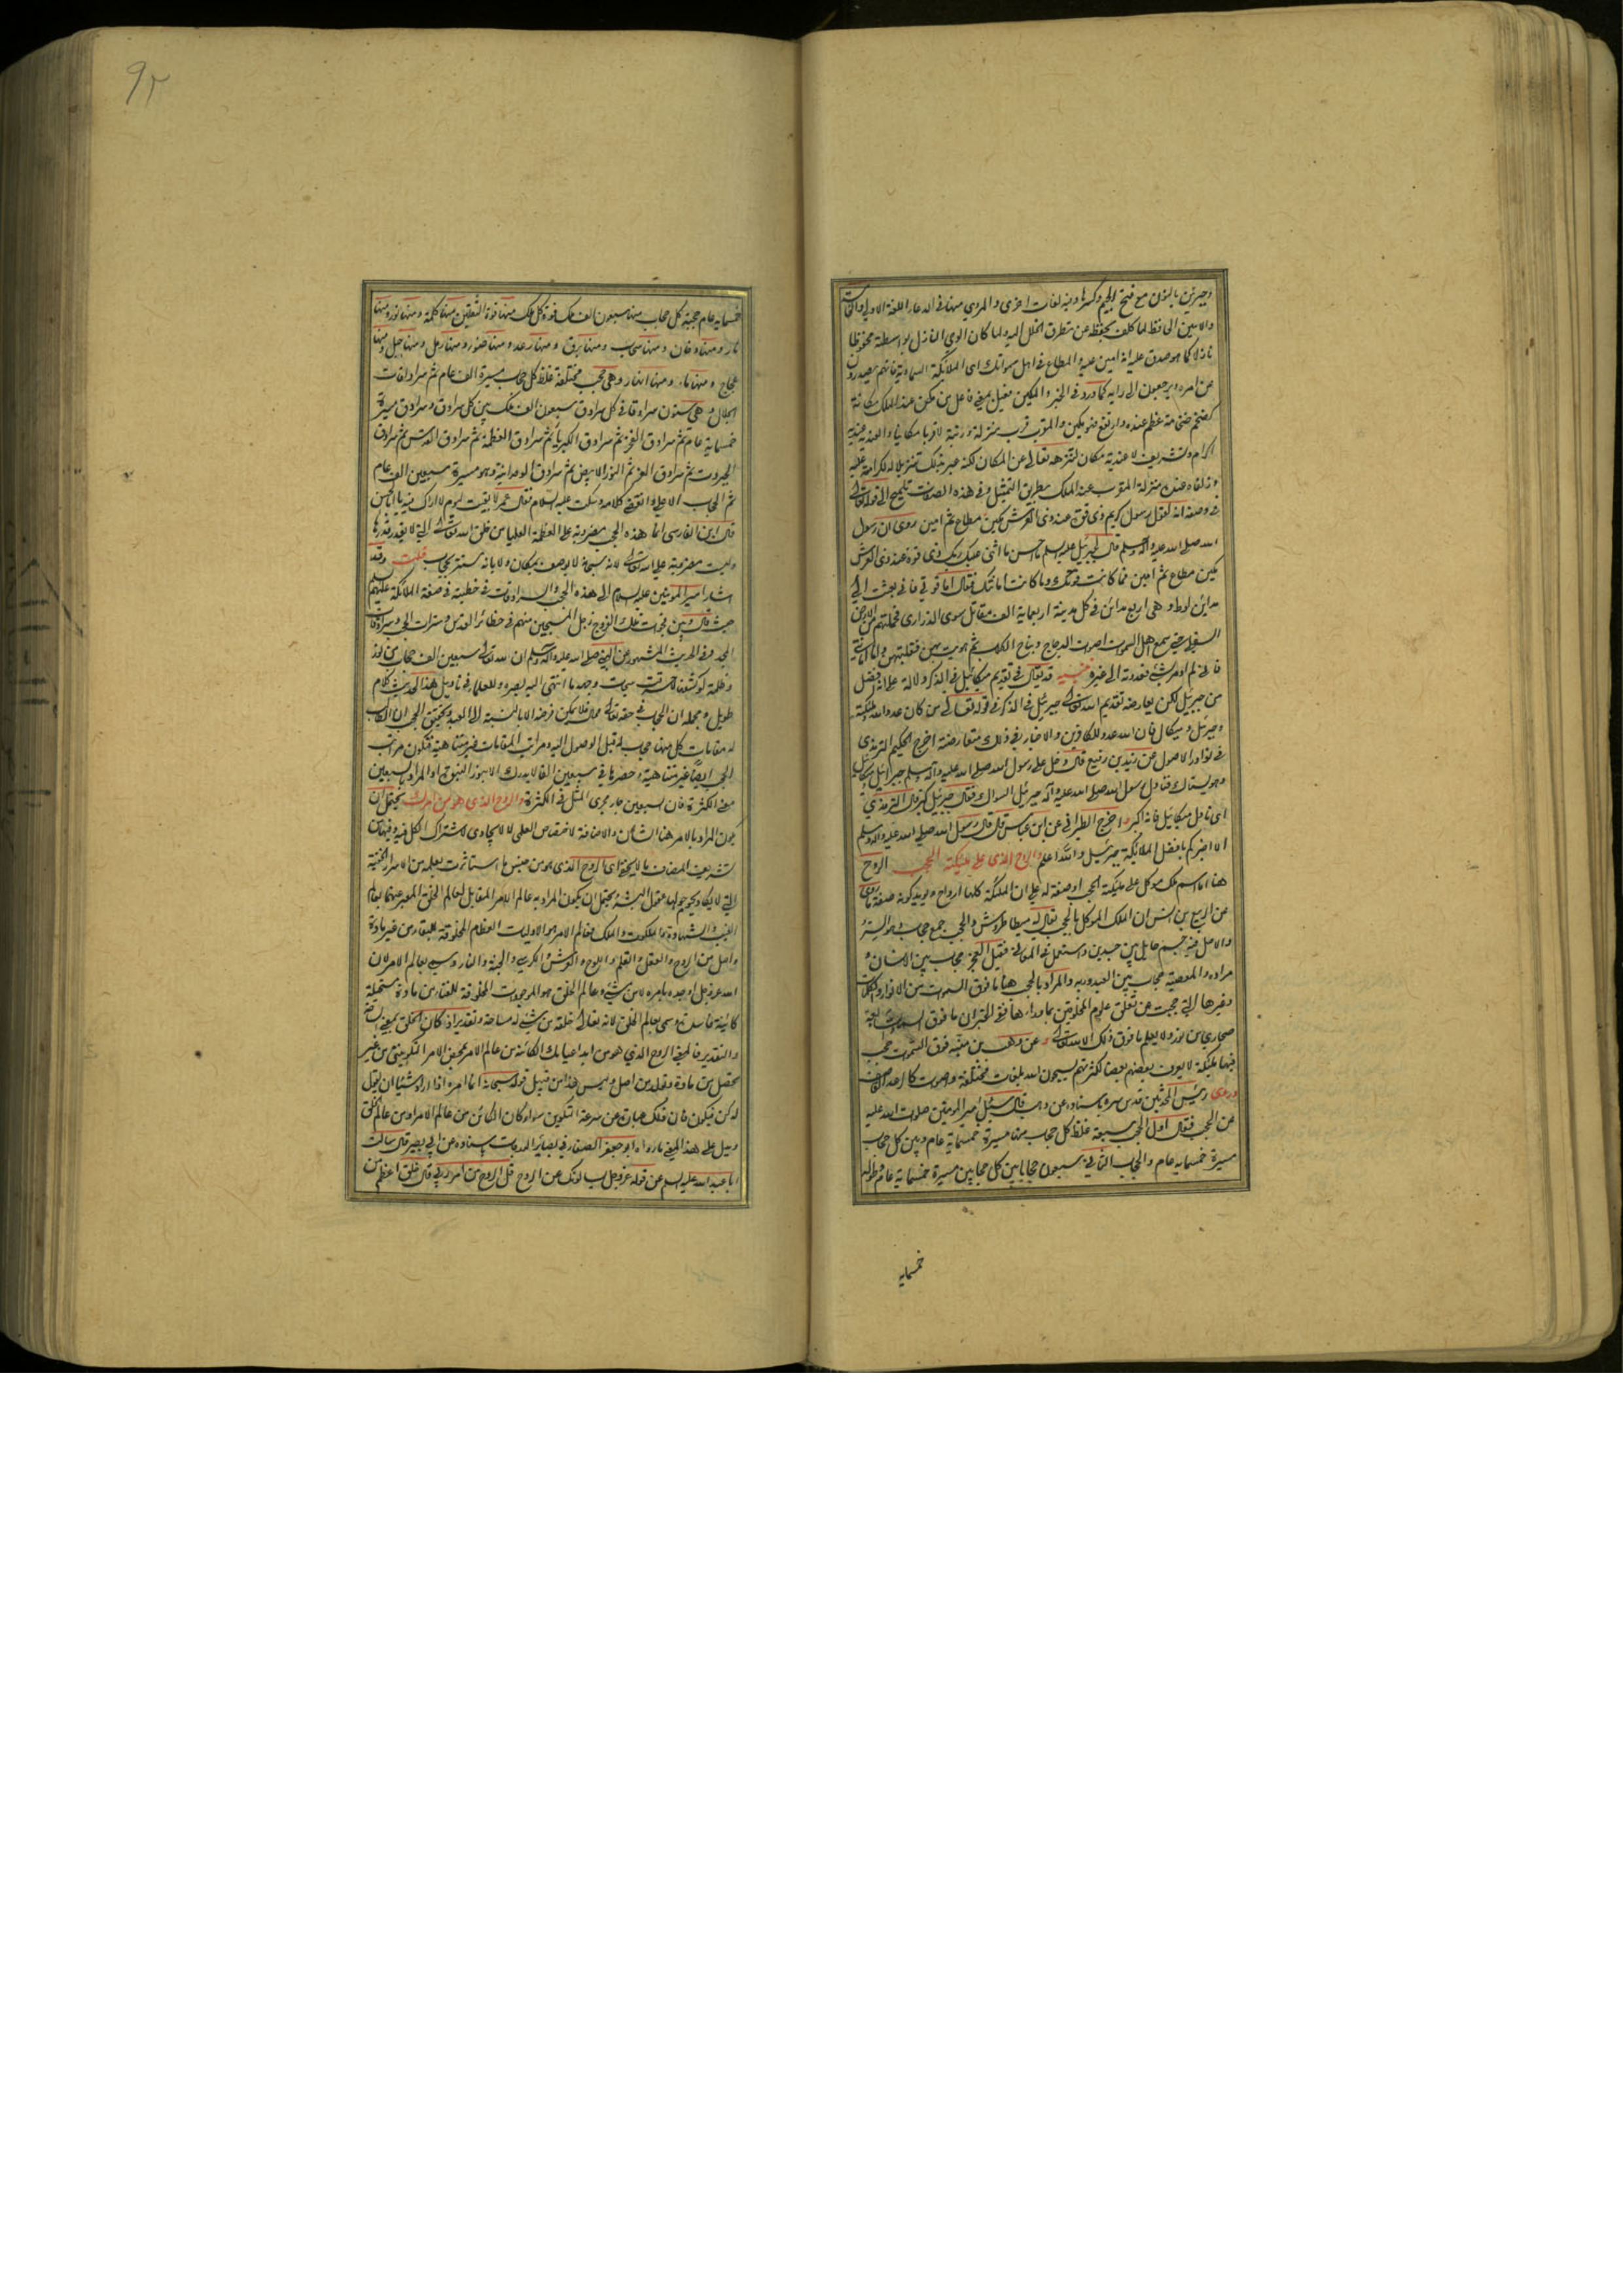 وجبرئين بالنون مع فتح الجيم وكسرها وفيه لغات اخرى والمروي منها في الدعاء اللغة الاولى
والامين الحافظ لما كلف بحفظه عن تطرق الخلل اليه ولما كان الوحي النازل بواسطته محفوظا
نازلا كما هو صدق عليه انه امين عليه والمطاع في اهل سمواتك اى الملائكة السماوية فانهم يصدرون
عن امره ويرجعون الى رايه كما ورد في الخبر والمكين فعيل بمعنى فاعل من مكن عند الملك مكانة
كضخم ضخامة عظم عنده وارتفع فهو مكين والمقرب قرب منزلة ورتبة لا قربا مكانيا والعندية عندية
اكرام وتشريف لا عندية مكان لتنزهه تعالى عن المكان لكنه عبر بذلك تنزيلا له لكرامته عليه
وزلفاه عنده منزلة المقرب عند الملك بطريق التمثيل وفي هذه الصفات تلميح الى قوله تعالى
في وصفه انه لقول رسول كريم ذى قوة عند ذى العرش مكين مطاع ثم امين روى ان رسول
الله صلى الله عليه وآله وسلم قال لجبرئيل عليه السلم ما احسن ما اثنى عليك ربك ذى قوة عند ذى العرش
مكين مطاع ثم امين فما كانت قوتك وما كانت امانتك فقال اما قوتي فاني بعثت الى
مدائن لوط وهى اربع مدائن في كل مدينة اربعماية الف مقاتل سوى الذرارى فحملتهم من الارض
السفلى حتى سمع اهل السموات اصوات الدجاج ونباح الكلاب ثم هويت بهن فقلبتهن واما امانتي
فاني لم اومر بشئ فعدوته الى غيره تنبيه قد يقال في تقديم ميكائيل في الذكر دلالة على انه افضل
من جبرئيل لكن يعارضه تقديم الله تعالى جبرئيل في الذكر في قوله تعالى من كان عدوا لله وملئكته
وجبرئيل وميكال فان الله عدو للكافرين والاخبار في ذلك متعارضة اخرج الحكيم الترمذى
في نوادر الاصول عن زيد بن رفيع قال دخل على رسول الله صلى الله عليه وآله وسلم جبرائيل وميكائيل
وهو يستاك فناول رسول الله صلى الله عليه وآله جبرئيل السواك فقال جبرئيل كبر قال الترمذى
اى ناول ميكائيل فانه اكبر واخرج الطبراني عن ابن عباس قال قال رسول الله صلى الله عليه وآله وسلم
الا اخبركم بافضل الملائكة جبرئيل والله اعلم والروح الذى على ملئكة الحجب الروح
هنا اما اسم ملك موكل على ملئكة الحجب او صفة له على ان الملئكة كلها ارواح ويؤيد كونه صفة ما روى
عن الربيع بن انس ان الملك الموكل بالحجب يقال له ميطاطروش والحجب جمع حجاب وهو الستر
والاصل فيه جسم حايل بين جسدين واستعمل في المعاني فقيل العجز حجاب بين الانسان و
مراده والمعصية حجاب بين العبد وربه والمراد بالحجب هنا ما فوق السموات من الانوار والظلمات
وغيرها التي حجبت عن تعلق علوم المخلوقين بما وراءها ففي الخبر ان ما فوق السموات السبع
صحارى من نور ولا يعلم ما فوق ذلك الا الله تعالى وعن وهب بن منبه فوق السموات حجب
فيها ملئكة لا يعرف بعضهم بعضا لكثرتهم يسبحون الله بلغات مختلفة واصوات كالرعد القاصف
وروى رئيس المحدثين قدس سره باسناده عن وهب قال سئل امير المومنين صلوات الله عليه
عن الحجب فقال اول الحجب سبعة غلظ كل حجاب منها مسيرة خمسماية عام وبين كل حجاب
مسيرة خمسماية عام والحجاب الثاني سبعون حجابا بين كل حجابين مسيرة خمسماية عام وطوله
خمسمايه
٩٢
خمسمايه عام حجبة كل حجاب منها سبعون الف ملك قوة كل ملك منها قوة الثقلين منها ظلمة ومنها نور ومنها
نار ومنها دخان ومنها سحاب ومنها برق ومنها رعد ومنها ضوء ومنها رمل ومنها جبل ومنها
عجاج ومنها ماء ومنها انهار وهى حجب مختلفة غلظ كل حجاب مسيرة الف عام ثم سرادقات
الجلال وهى ستون سرادقا في كل سرادق سبعون الف ملك بين كل سرادق وسرادق مسيرة
خمسماية عام ثم سرادق العز ثم سرادق الكبرياء ثم سرادق العظمة ثم سرادق القدس ثم سرادق
الجبروت ثم سرادق الفخر ثم النور الابيض ثم سرادق الوحدانية وهو مسيرة سبعين الف عام
ثم الحجاب الاعلى وانقضى كلامه وسكت عليه السلام فقال عمر لا بقيت ليوم لا اراك فيه يا ابا الحسن
قال ابن الفارسى انما هذه الحجب مضروبة على العظمة العليا من خلق الله تعالى التي لا يقدر قدرها
وليست مضروبة على الله تعالى لانه سبحانه لا يوصف بمكان ولا بانه مستتر بحجاب قلت وقد
اشار امير المومنين عليه السلام الى هذه الحجب والسرادقات في خطبته في صفة الملائكة عليهم
حيث قال وبين فجوات تلك الفروج زجل المسبحين منهم في حظائر القدس وسترات الحجب وسرادقات
المجد وفي الحديث المشهور عن النبي صلى الله عليه وآله وسلم ان لله تعالى سبعين الف حجاب من نور
وظلمة لو كشفها لاحرقت سبحات وجهه ما انتهى اليه بصره وللعلماء في تاويل هذا الحديث كلام
طويل ومجمله ان الحجاب في حقه تعالى محال فلا يمكن فرضه الا بالنسبة الى العبد وتحقيق الحجب ان للطالب
له مقامات كل منها حجاب له قبل الوصول اليه ومراتب المقامات غير متناهية فتكون مراتب
الحجب ايضا غير متناهية وحصرها في سبعين الفا لا يدرك الا بنور النبوة او المراد بسبعين
معنى الكثرة فان سبعين جار مجرى المثل في الكثرة والروح الذى هو من امرك يحتمل ان
يكون المراد بالامر هنا الشان والاضافة لاختصاص العلمى لا الايجادى لاشتراك الكل فيه وفيها من
تشريف المضاف ما لا يخفى اى الروح الذى هو من جنس ما استاثرت بعلمه من الاسرار الخفية
التي لا يكاد يحوم حولها عقول البشر ويحتمل ان يكون المراد به عالم الامر المقابل لعالم الخلق المعبر عنهما بعالم
الغيب والشهادة والملكوت والملك فعالم الامر هو الاوليات العظام المخلوقة للبقاء من غير مادة
واصل من الروح والعقل والقلم واللوح والعرش والكرسى والجنة والنار وسمى عالم الامر لان
الله عز وجل اوجده بامره لا من شئ وعالم الخلق هو الموجودات المخلوقة للفناء من مادة مستحيلة
كائنة فاسدة وسمى بعالم الخلق لانه تعالى خلقه من شئ له مساحة وتقدير اذ كان الخلق بمعنى المساحة
والتقدير فالمعنى الروح الذي هو من ابداعياتك الكائنة من عالم الامر بمحض الامر التكويني من غير
تحصل من مادة وتولد من اصل وليس هذا من قبيل قوله سبحانه انما امره اذا اراد شيئا ان يقول
له كن فيكون فان ذلك عبارة عن سرعة التكوين سواء كان الكائن من عالم الامر او من عالم الخلق
ويدل على هذا المعنى ما رواه ابو جعفر الصفار في بصائر الدرجات باسناده عن ابي بصير قال سالت
ابا عبد الله عليه السلم عن قوله عز وجل يسالونك عن الروح قل الروح من امر ربي قال خلق اعظم من